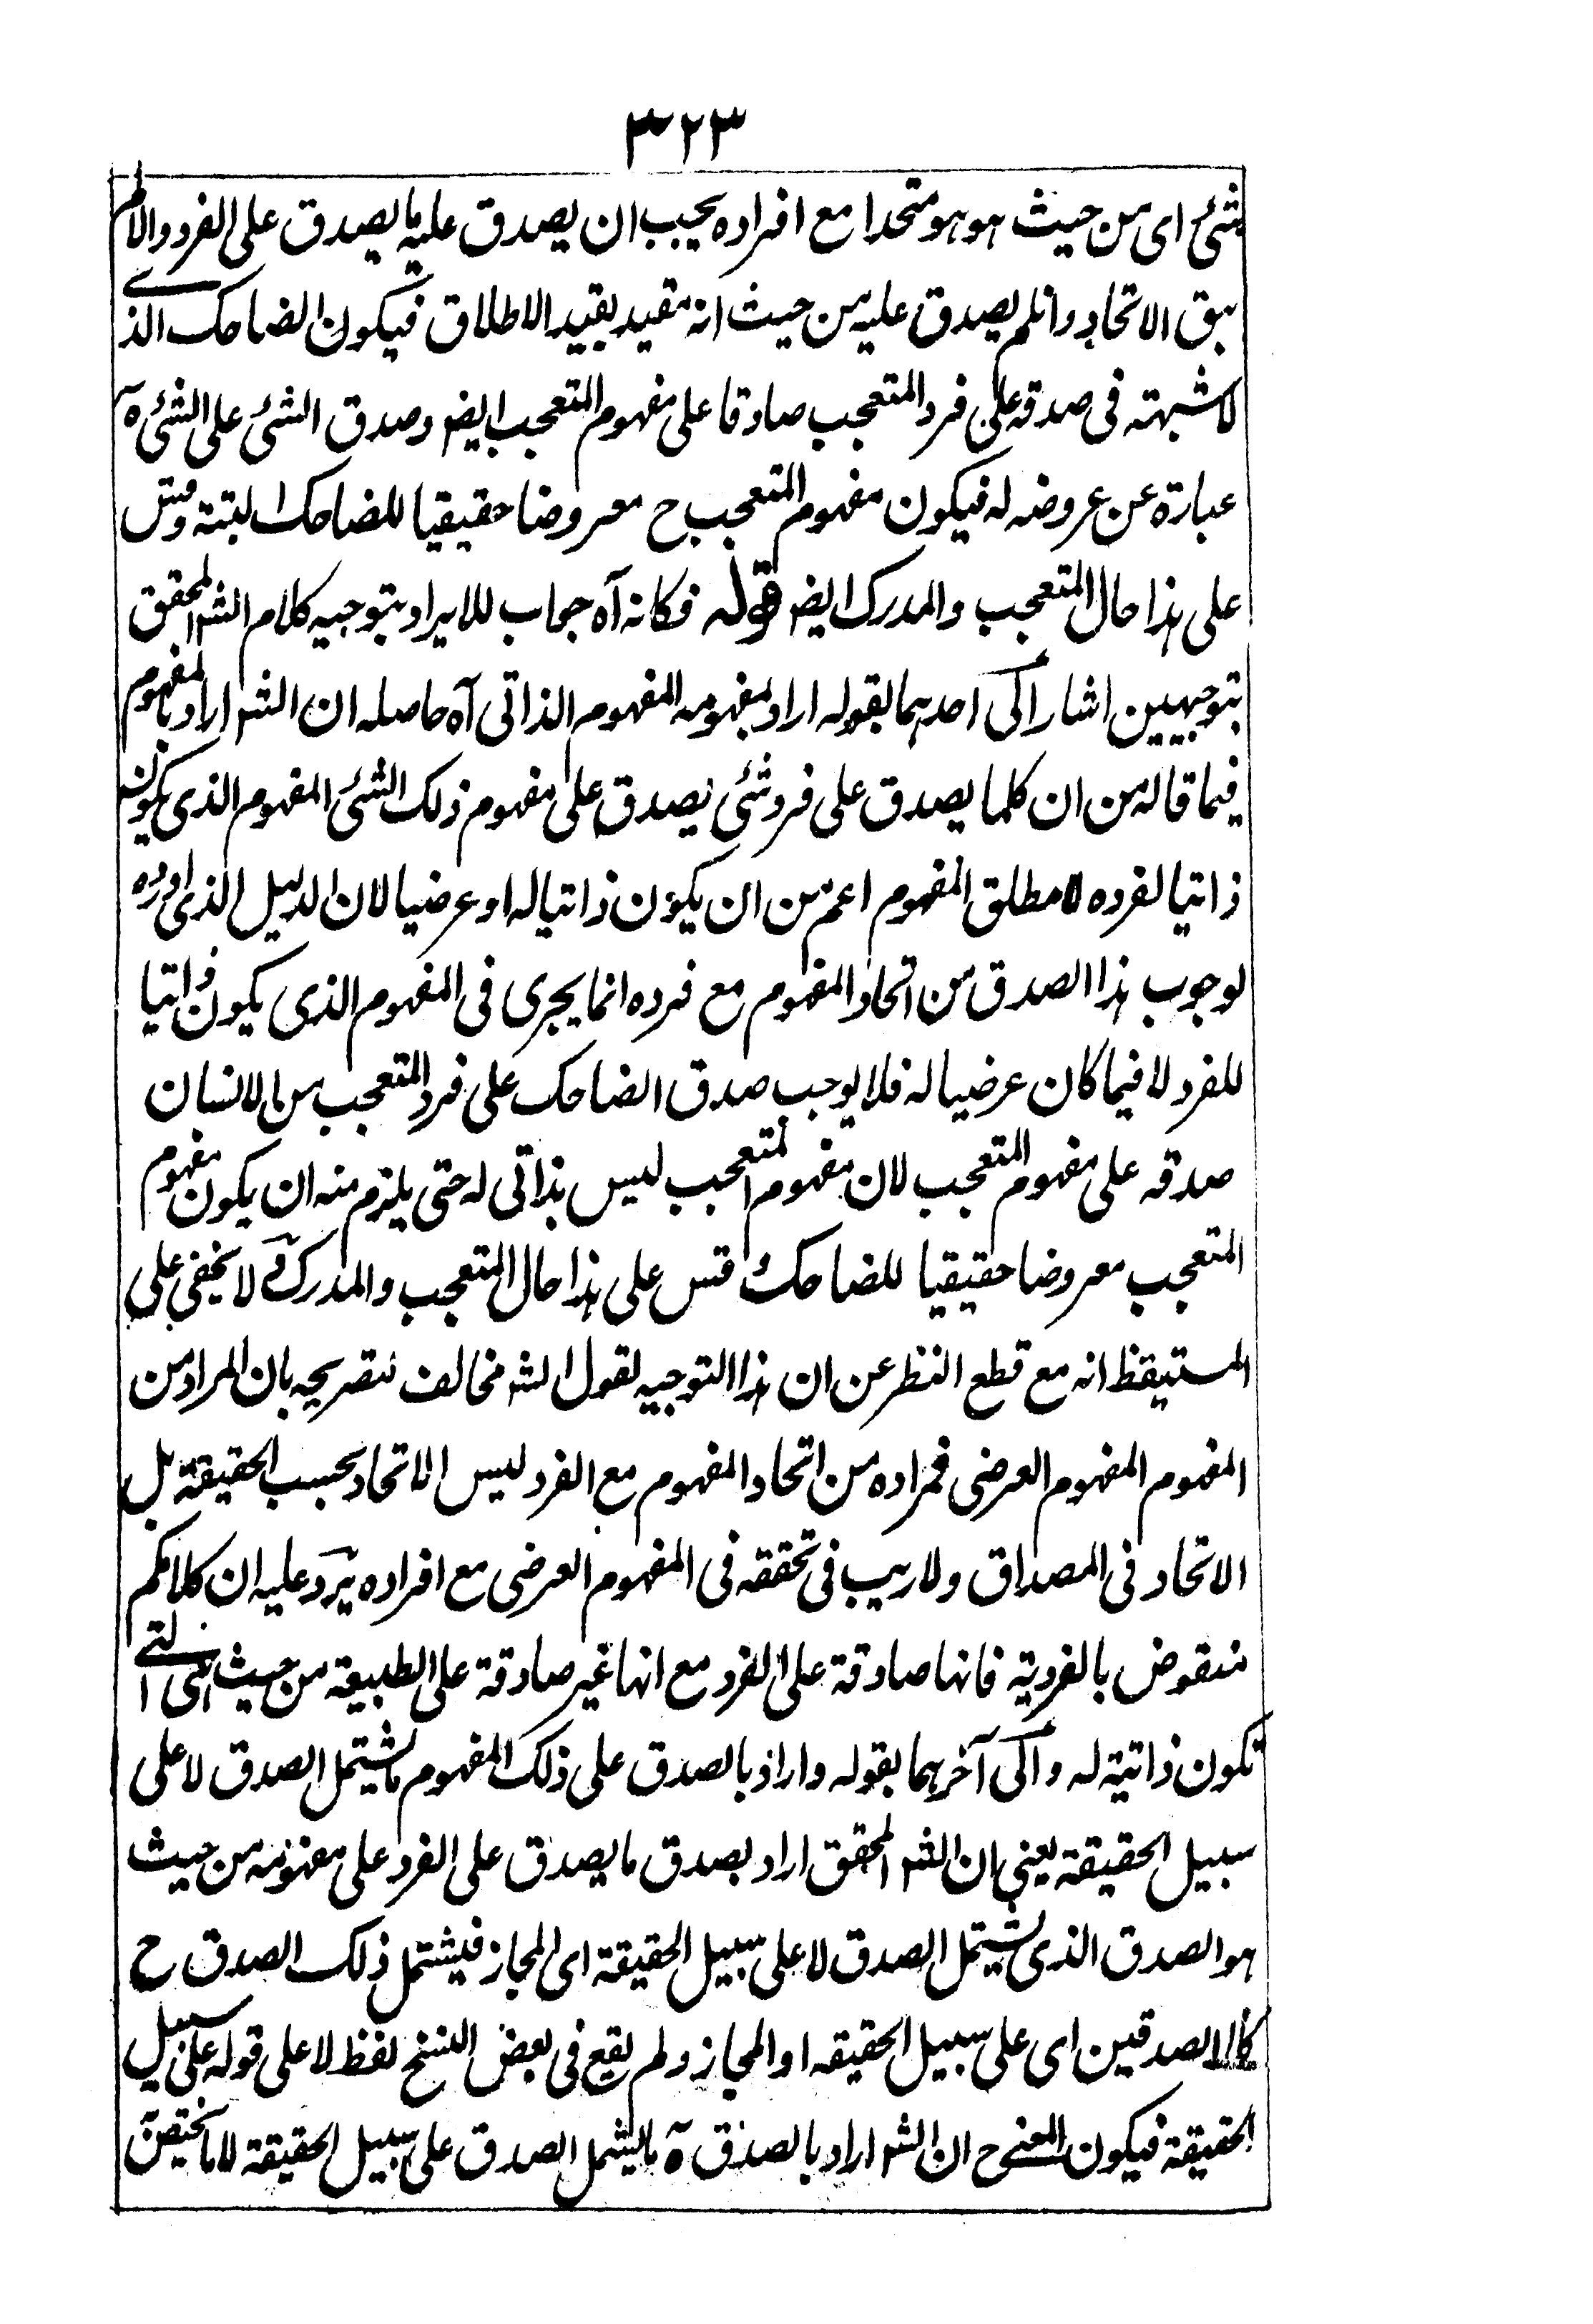 ٣٢٣
شئ اى من حيث هو هو متحدا مع افراده يجب ان يصدق عليه ما يصدق على الفرد والا لم
يبق الاتحاد وان لم يصدق عليه من حيث انه مقيد بقيد الاطلاق فيكون الضاحك الذى
لا شبهته فى صدقه على فرد المتعجب صادقا على مفهوم المتعجب ايضا وصدق الشئ على الشئ ه
عبارة عن عروضه له فيكون مفهوم المتعجب ح معروضا حقيقيا للضاحك البتة وقس
على هذا حال المتعجب والمدرك ايضا قوله فكانه آه جواب للايراد بتوجيه كلام الشر المحقق
بتوجيهين اشار الى احدهما بقوله اراد بمفهومه المفهوم الذاتى آه حاصله ان الشر اراد بالمفهوم
فيما قاله من ان كلما يصدق على فرد شئ يصدق على مفهوم ذلك الشئ المفهوم الذى يكون
ذاتيا لفرده لا مطلق المفهوم اعم من ان يكون ذاتيا له او عرضيا لان الدليل الذى اورده
لوجوب هذا الصدق من اتحاد المفهوم مع فرده انما يجرى فى المفهوم الذى يكون ذاتيا
للفرد لا فيما كان عرضيا له فلا يوجب صدق الضاحك على فرد المتعجب من الانسان
صدقه على مفهوم المتعجب لان مفهوم المتعجب ليس بذاتى له حتى يلزم منه ان يكون مفهوم
المتعجب معروضا حقيقيا للضاحك وقس على هذا حال المتعجب والمدرك لا يخفى على
المستيقظ انه مع قطع النظر عن ان هذا التوجيه لقول الشر مخالف لتصريحه بان المراد من
المفهوم المفهوم العرضى فمراده من اتحاد المفهوم مع الفرد ليس الاتحاد بحسب الحقيقة بل
الاتحاد فى المصداق ولا ريب فى تحققه فى المفهوم العرضى مع افراده يرد عليه ان كلامكم
منقوض بالفردية فانها صادقة على الفرد مع انها غير صادقة على الطبيعة من حيث هى التى
تكون ذاتية له والى آخرهما بقوله واراد بالصدق على ذلك المفهوم ما يشتمل الصدق لا على
سبيل الحقيقة يعنى ان الشر المحقق اراد بصدق ما يصدق على الفرد على مفهومه من حيث
هو الصدق الذى يشتمل الصدق لا على سبيل الحقيقة اى المجاز فيشتمل ذلك الصدق ح
كلا الصدقين اى على سبيل الحقيقه او المجاز ولم يقع فى بعض النسخ لفظ لا على قوله على سبيل
الحقيقة فيكون المعنى ح ان الشر اراد بالصدق ه ما يشمل الصدق على سبيل الحقيقة لا ما يختص